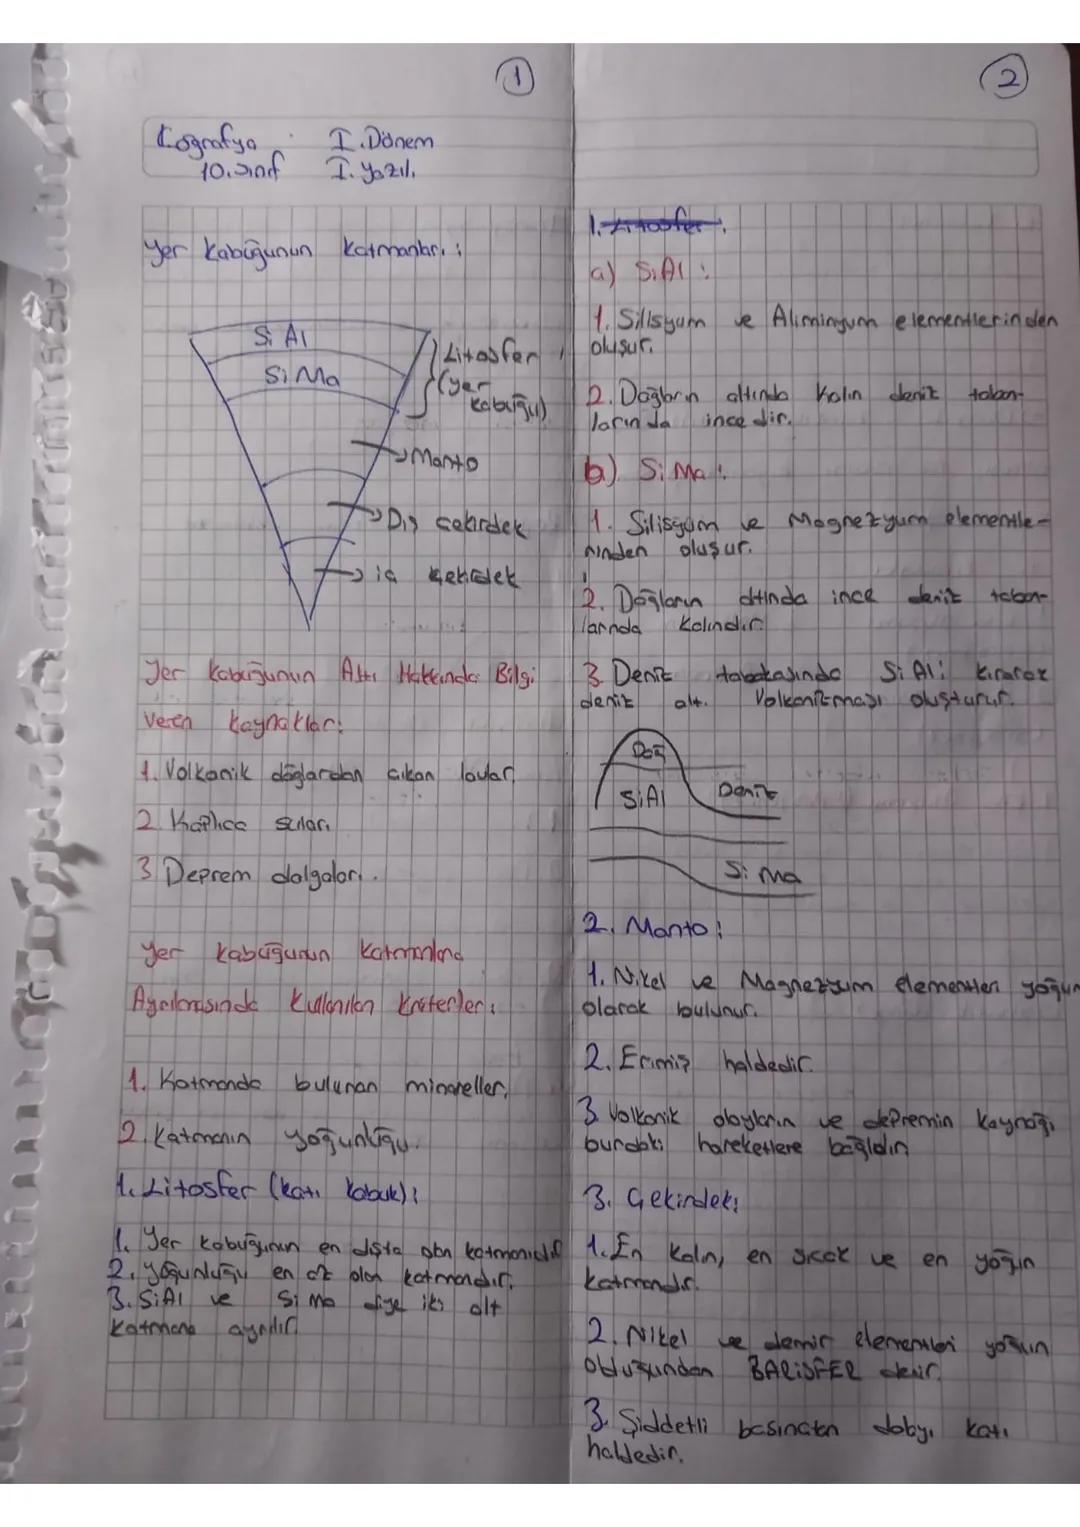 1
Coğrafya : I. Dönem
10. Sınıf I. Yazılı
Yer Kabuğunun Katmanları :
Si Al
Si Ma
Litosfer
(yer
kabuğu)
Manto
Dış çekirdek
iç çekirdek
Yer Kabuğunun Altı Hakkında Bilgi
Veren Kaynaklar:
1. Volkanik dağlardan çıkan lavlar.
2. Kaplıca suları
3. Deprem dalgaları.
Yer Kabuğunun Katmanlara
Ayrılmasında Kullanılan Kriterler:
1. Katmanda bulunan minareller.
2. Katmanın yoğunluğu.
1. Litosfer (katı kabuk):
1. Yer kabuğunun en dışta olan katmanıdır
2. yoğunluğu en az olan katmandır.
3. SiAl ve Si Ma diye iki alt
katmana ayrılır.
2
1. Litosfer :
a) SiAl :
1. Silisyum ve Aliminyum elementlerinden
oluşur.
2. Dağların altında Kalın deniz taban-
larında incedir.
b) Si Ma :
1. Silisyum ve Magnezyum elementle-
rinden oluşur.
2. Dağların altında ince deniz taban-
larında Kalındır.
3. Deniz tabakasında Si Al'i kırarak
deniz altı Volkanizması oluşturur.
Dağ
SiAl
Deniz
Si Ma
2. Manto :
1. Nikel ve Magnezyum elementleri yoğun
olarak bulunur.
2. Erimiş haldedir.
3. Volkanik olayların ve depremin Kaynağı
burdaki hareketlere bağlıdır
3. Çekirdek:
1. En Kalın, en sıcak ve en yoğun
katmandır.
2. Nikel ve demir elementleri yoğun
olduğundan BARİSFER denir.
3. Şiddetli basınçtan dolayı katı
haldedir.